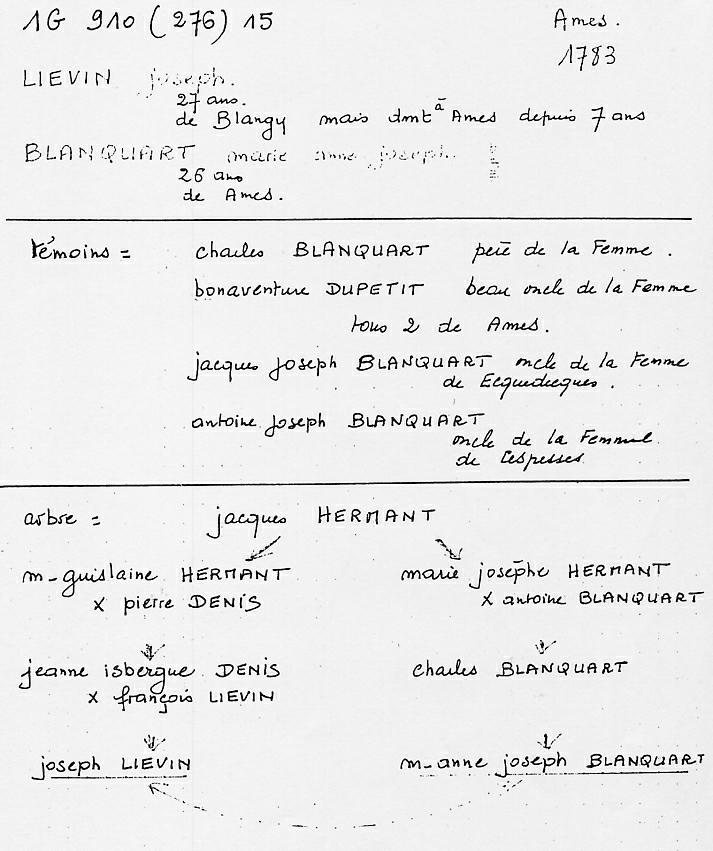 1G 910 (276) 15
Ames.
1783
LIEVIN joseph.
27 ans.
de Blangy mais dmt à Ames depuis 7 ans
BLANQUART marie anne joseph.
26 ans
de Ames.
témoins = charles BLANQUART père de la Femme.
bonaventure DUPETIT beau oncle de la Femme
tous 2 de Ames.
jacques joseph BLANQUART oncle de la Femme
de Ecquedecques.
antoine joseph BLANQUART
oncle de la Femme
de Lespesses
arbre = jacques HERMANT
m-guislaine HERMANT marie josèphe HERMANT
x pierre DENIS x antoine BLANQUART
jeanne isbergue DENIS charles BLANQUART
x françois LIEVIN
joseph LIEVIN m-anne joseph BLANQUART